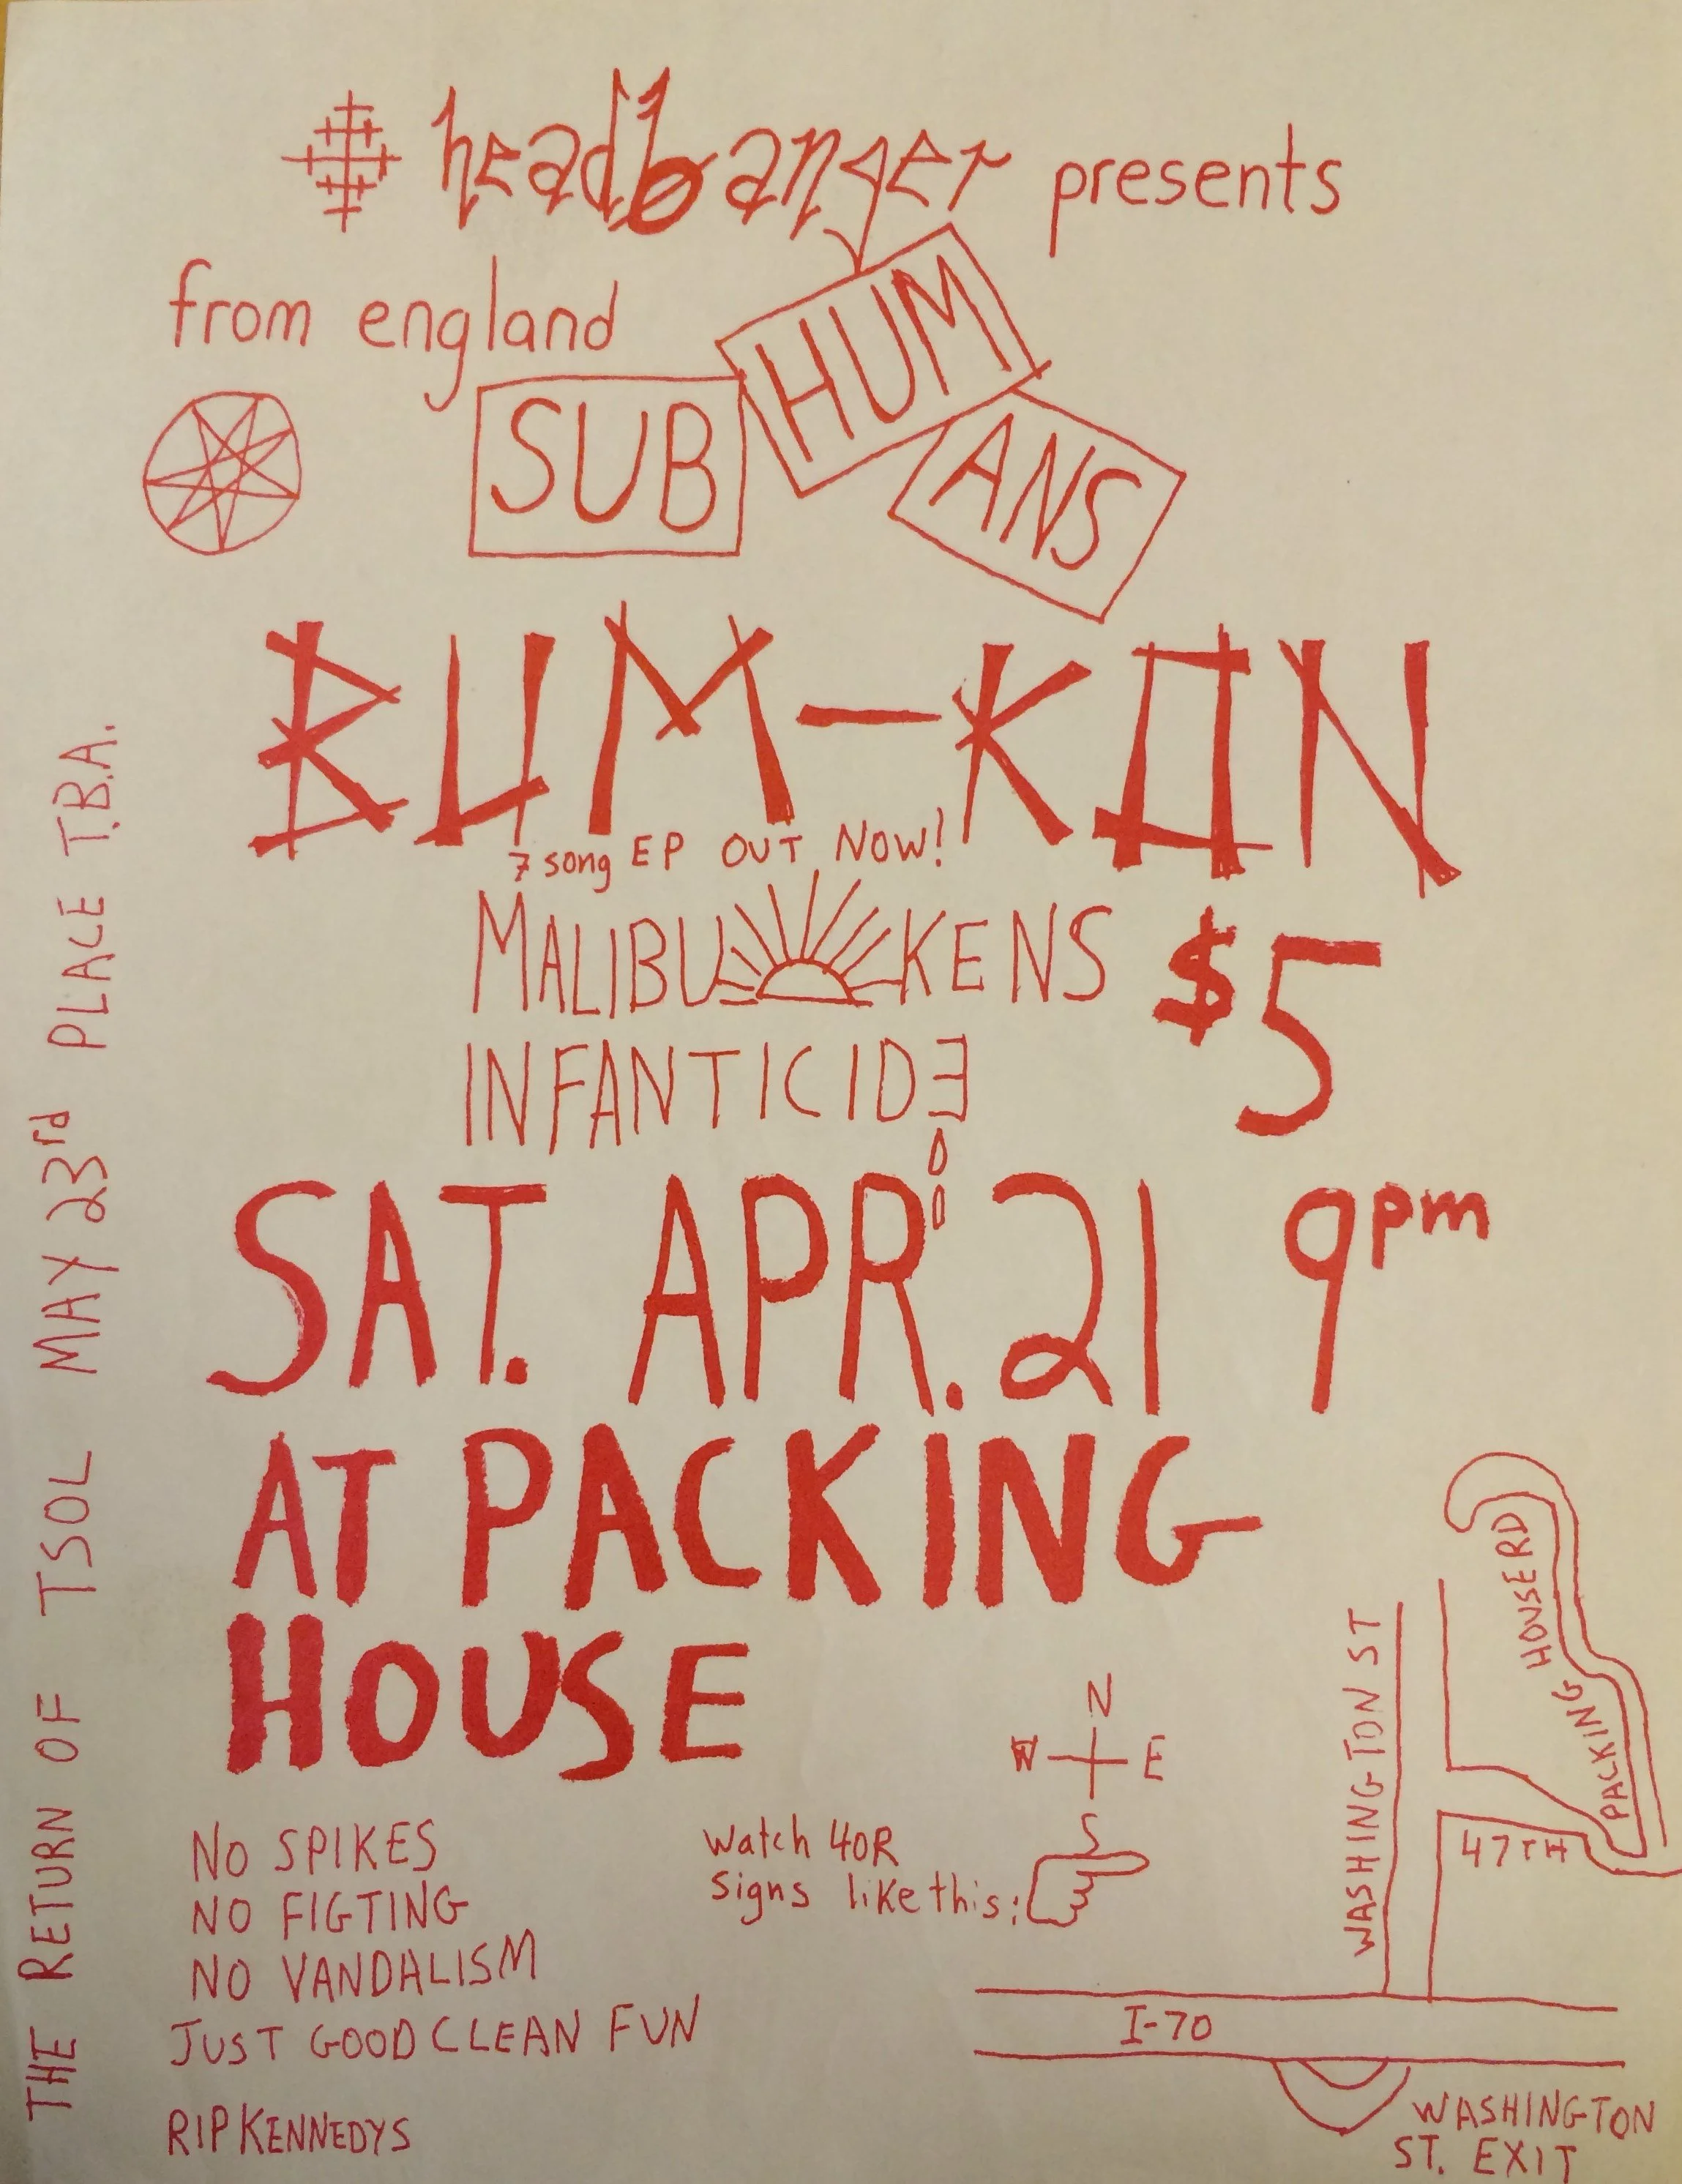 headbanger presents
from england
SUB HUM ANS
BUM-KON
7 song EP OUT NOW!
MALIBU KENS
$5
INFANTICIDE
SAT. APR. 21 9pm
AT PACKING
HOUSE
NO SPIKES
NO FIGTING
NO VANDALISM
JUST GOOD CLEAN FUN
RIP KENNEDYS
watch 4OR
signs like this:
N
W E
S
WASHINGTON ST
PACKING HOUSE RD
47TH
I-70
WASHINGTON
ST. EXIT
THE RETURN OF TSOL MAY 23rd PLACE T.B.A.